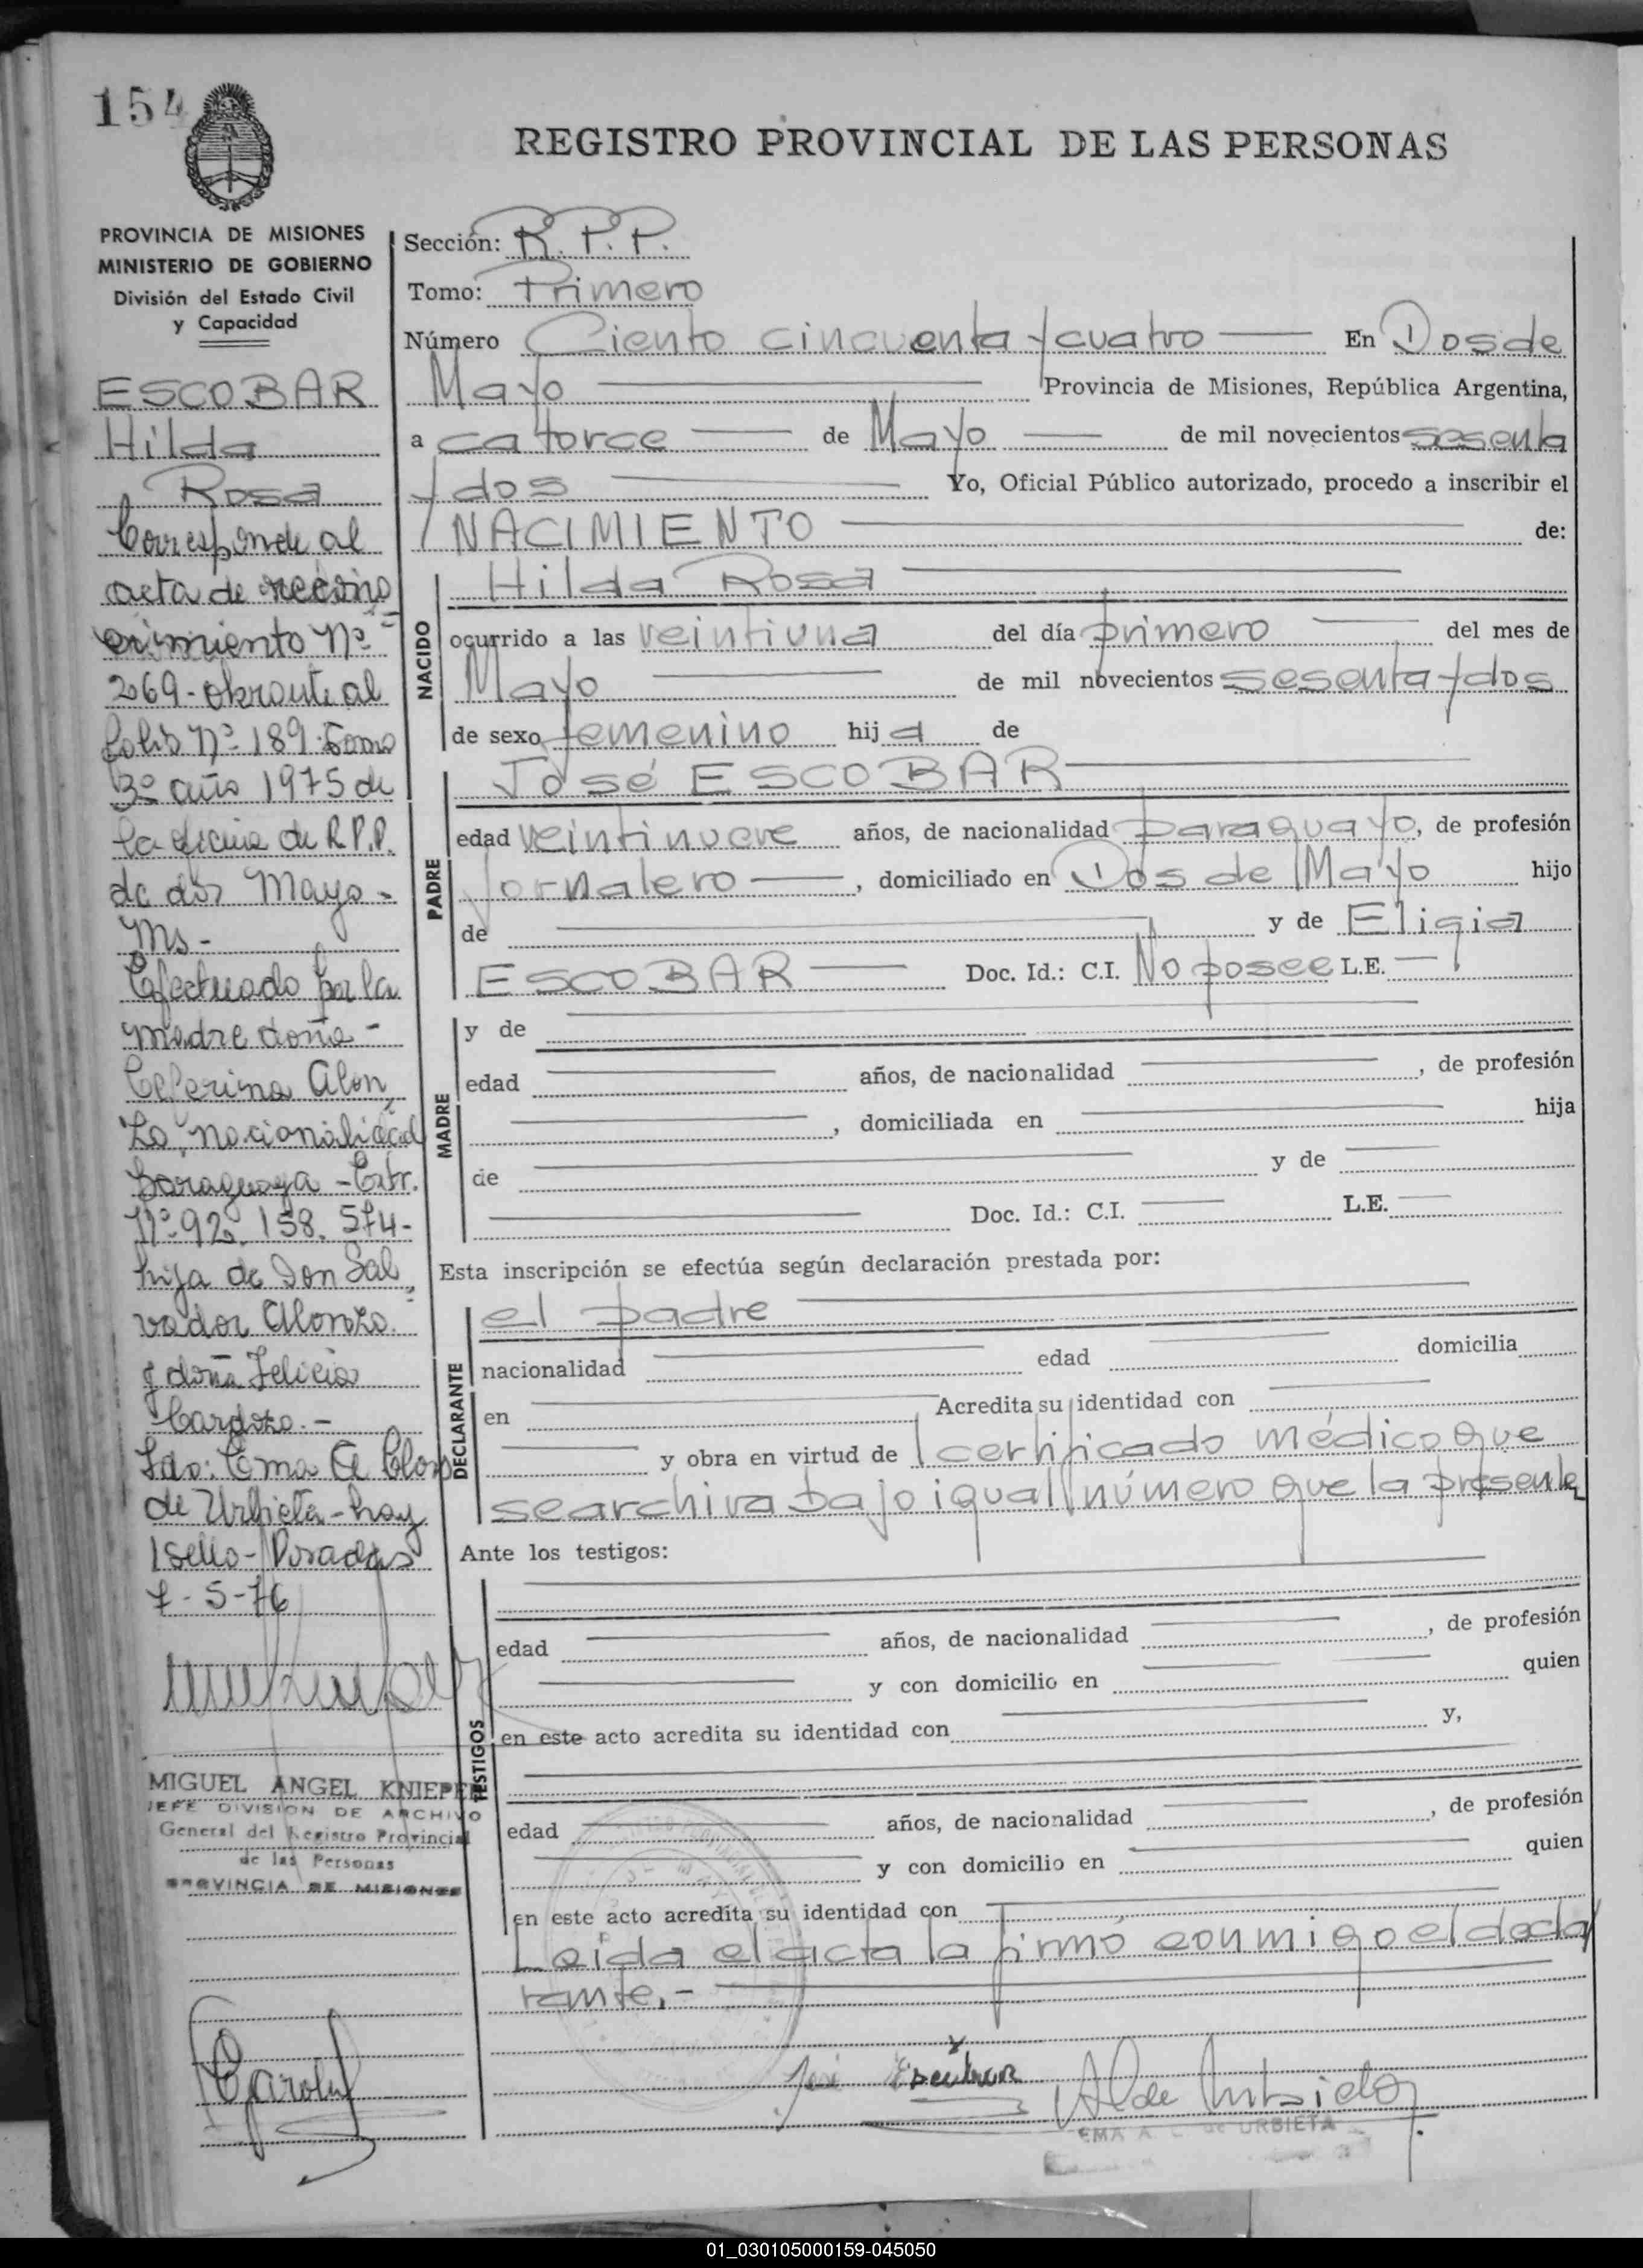 154
REGISTRO PROVINCIAL DE LAS PERSONAS
PROVINCIA DE MISIONES
MINISTERIO DE GOBIERNO
División del Estado Civil
y Capacidad
ESCOBAR
Hilda
Rosa
Corresponde al
acta de recono
cimiento Nº
269- obrante al
folio Nº 189 tomo
3º año 1975 de
la oficina de R.P.P.
de dos Mayo-
Ms-
Efectuado por la
madre doña-
Ceferina Alon
zo, nacionalidad
paraguaya - Extr.
Nº 92.158.574-
hija de Don Sal
vador Alonzo
y doña Felicia
Cardozo.-
Fdo: Ema A
de Urbieta - hay
1 sello- Posadas
7-5-76
MIGUEL ANGEL
JEFE DIVISION DE ARCHIVO
General del Registro Provincial
de las Personas
PROVINCIA DE MISIONES
Sección: R.P.P.
Tomo: Primero
Número Ciento cincuenta y cuatro En Dos de
Mayo Provincia de Misiones, República Argentina,
a catorce de Mayo de mil novecientos sesenta
y dos Yo, Oficial Público autorizado, procedo a inscribir el
NACIMIENTO de:
NACIDO
Hilda Rosa
ocurrido a las veintiuna del día primero del mes de
Mayo de mil novecientos sesenta y dos
de sexo femenino hija de
PADRE
José ESCOBAR
edad veintinueve años, de nacionalidad paraguayo, de profesión
jornalero, domiciliado en Dos de Mayo hijo
de y de Eligia
ESCOBAR Doc. Id.: C.I. No posee L.E.
MADRE
y de
edad años, de nacionalidad , de profesión
, domiciliada en hija
de y de
Doc. Id.: C.I. L.E.
Esta inscripción se efectúa según declaración prestada por:
DECLARANTE
el padre
nacionalidad edad domicilia
en Acredita su identidad con
y obra en virtud de certificado médico que
se archiva bajo igual número que la presente
Ante los testigos:
TESTIGOS
edad años, de nacionalidad , de profesión
y con domicilio en quien
en este acto acredita su identidad con y,
edad años, de nacionalidad , de profesión
y con domicilio en quien
en este acto acredita su identidad con
Leida el acta la firmó conmigo el decla
rante.-
José Escobar
A de Urbieta
EMA A. C. de URBIETA
01_030105000159-045050